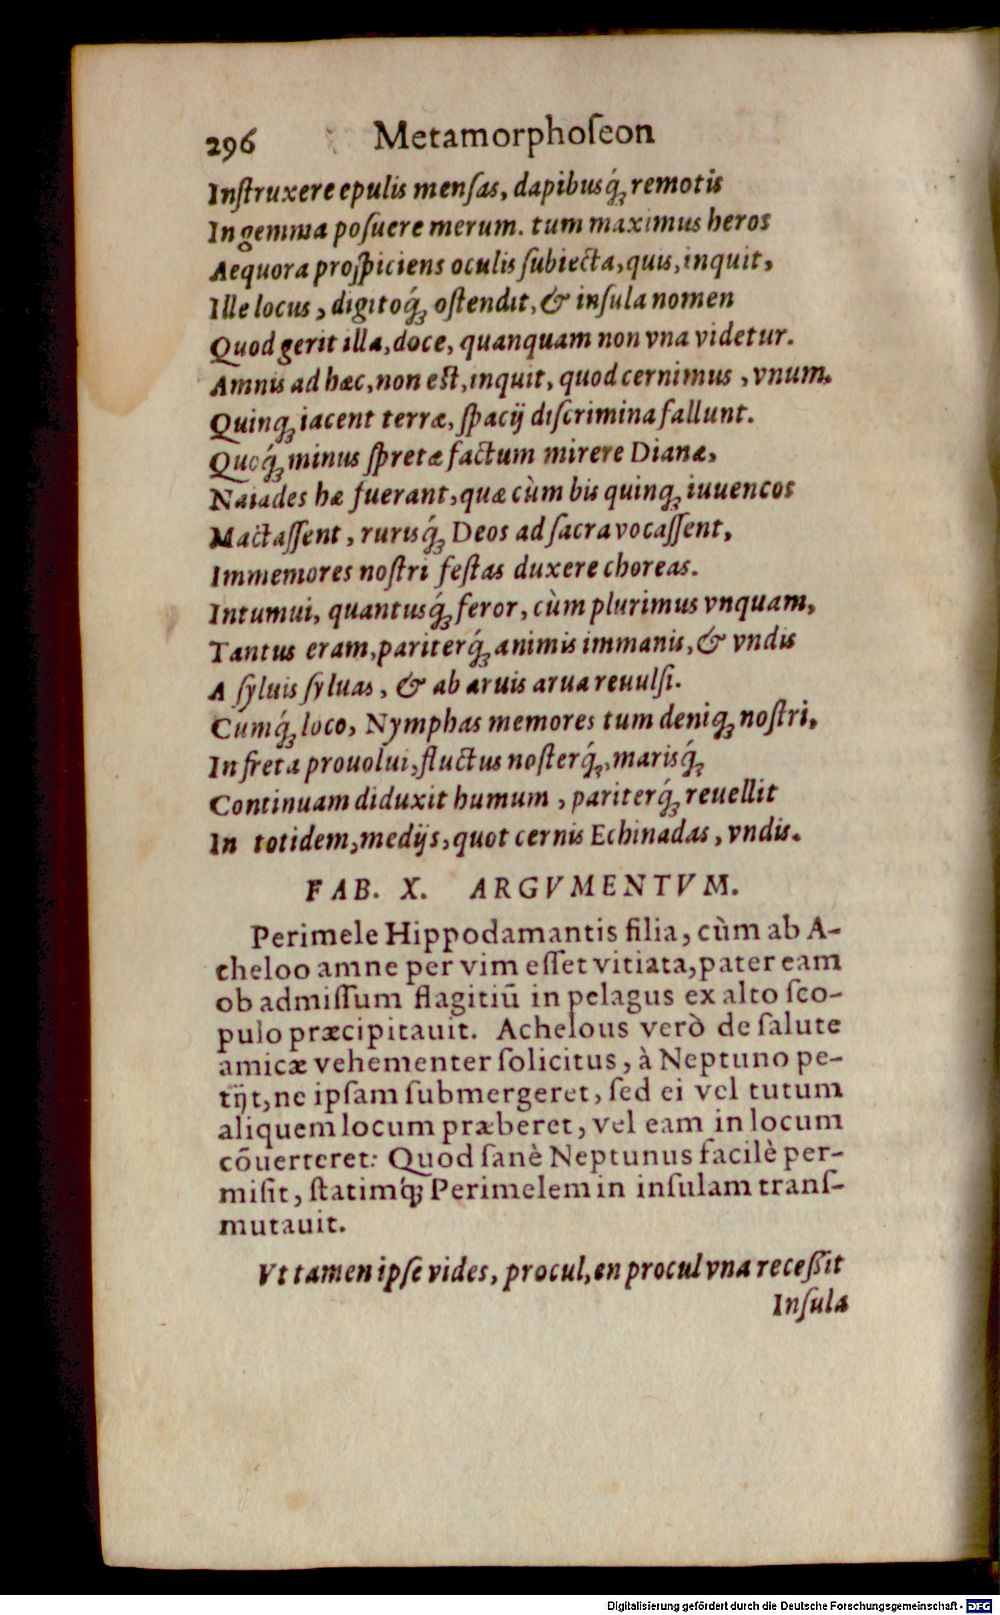 296 Metamorphoſeon
Inſtruxere epulis menſas, dapibusq́; remotis
In gemma poſuere merum. tum maximus heros
Aequora proſpiciens oculis ſubiecta, quis, inquit,
Ille locus, digitoq́; oſtendit, & inſula nomen
Quod gerit illa, doce, quanquam non vna videtur.
Amnis ad hæc, non eſt, inquit, quod cernimus, vnum.
Quinq; iacent terræ, ſpacij diſcrimina fallunt.
Quoq́; minus ſpretæ factum mirere Dianæ,
Naiades hæ fuerant, quæ cùm bis quinq; iuuencos
Mactaſſent, rurisq́; Deos ad ſacra vocaſſent,
Immemores noſtri feſtas duxere choreas.
Intumui, quantusq́; feror, cùm plurimus vnquam,
Tantus eram, pariterq́; animis immanis, & vndis
A ſyluis ſyluas, & ab aruis arua reuulſi.
Cumq́; loco, Nymphas memores tum deniq; noſtri,
In freta prouolui, fluctus noſterq́;, marisq́;
Continuam diduxit humum, pariterq́; reuellit
In totidem, medijs, quot cernis Echinadas, vndis.
FAB. X. ARGVMENTVM.
Perimele Hippodamantis filia, cùm ab A-
cheloo amne per vim eſſet vitiata, pater eam
ob admiſſum flagitiũ in pelagus ex alto ſco-
pulo præcipitauit. Achelous verò de ſalute
amicæ vehementer ſolicitus, à Neptuno pe-
tijt, ne ipſam ſubmergeret, ſed ei vel tutum
aliquem locum præberet, vel eam in locum
cõuerteret: Quod ſanè Neptunus facilè per-
miſit, ſtatimq́; Perimelem in inſulam tranſ-
mutauit.
Vt tamen ipſe vides, procul, en procul vna receſſit
Inſula
Digitalisierung gefördert durch die Deutsche Forschungsgemeinschaft - DFG